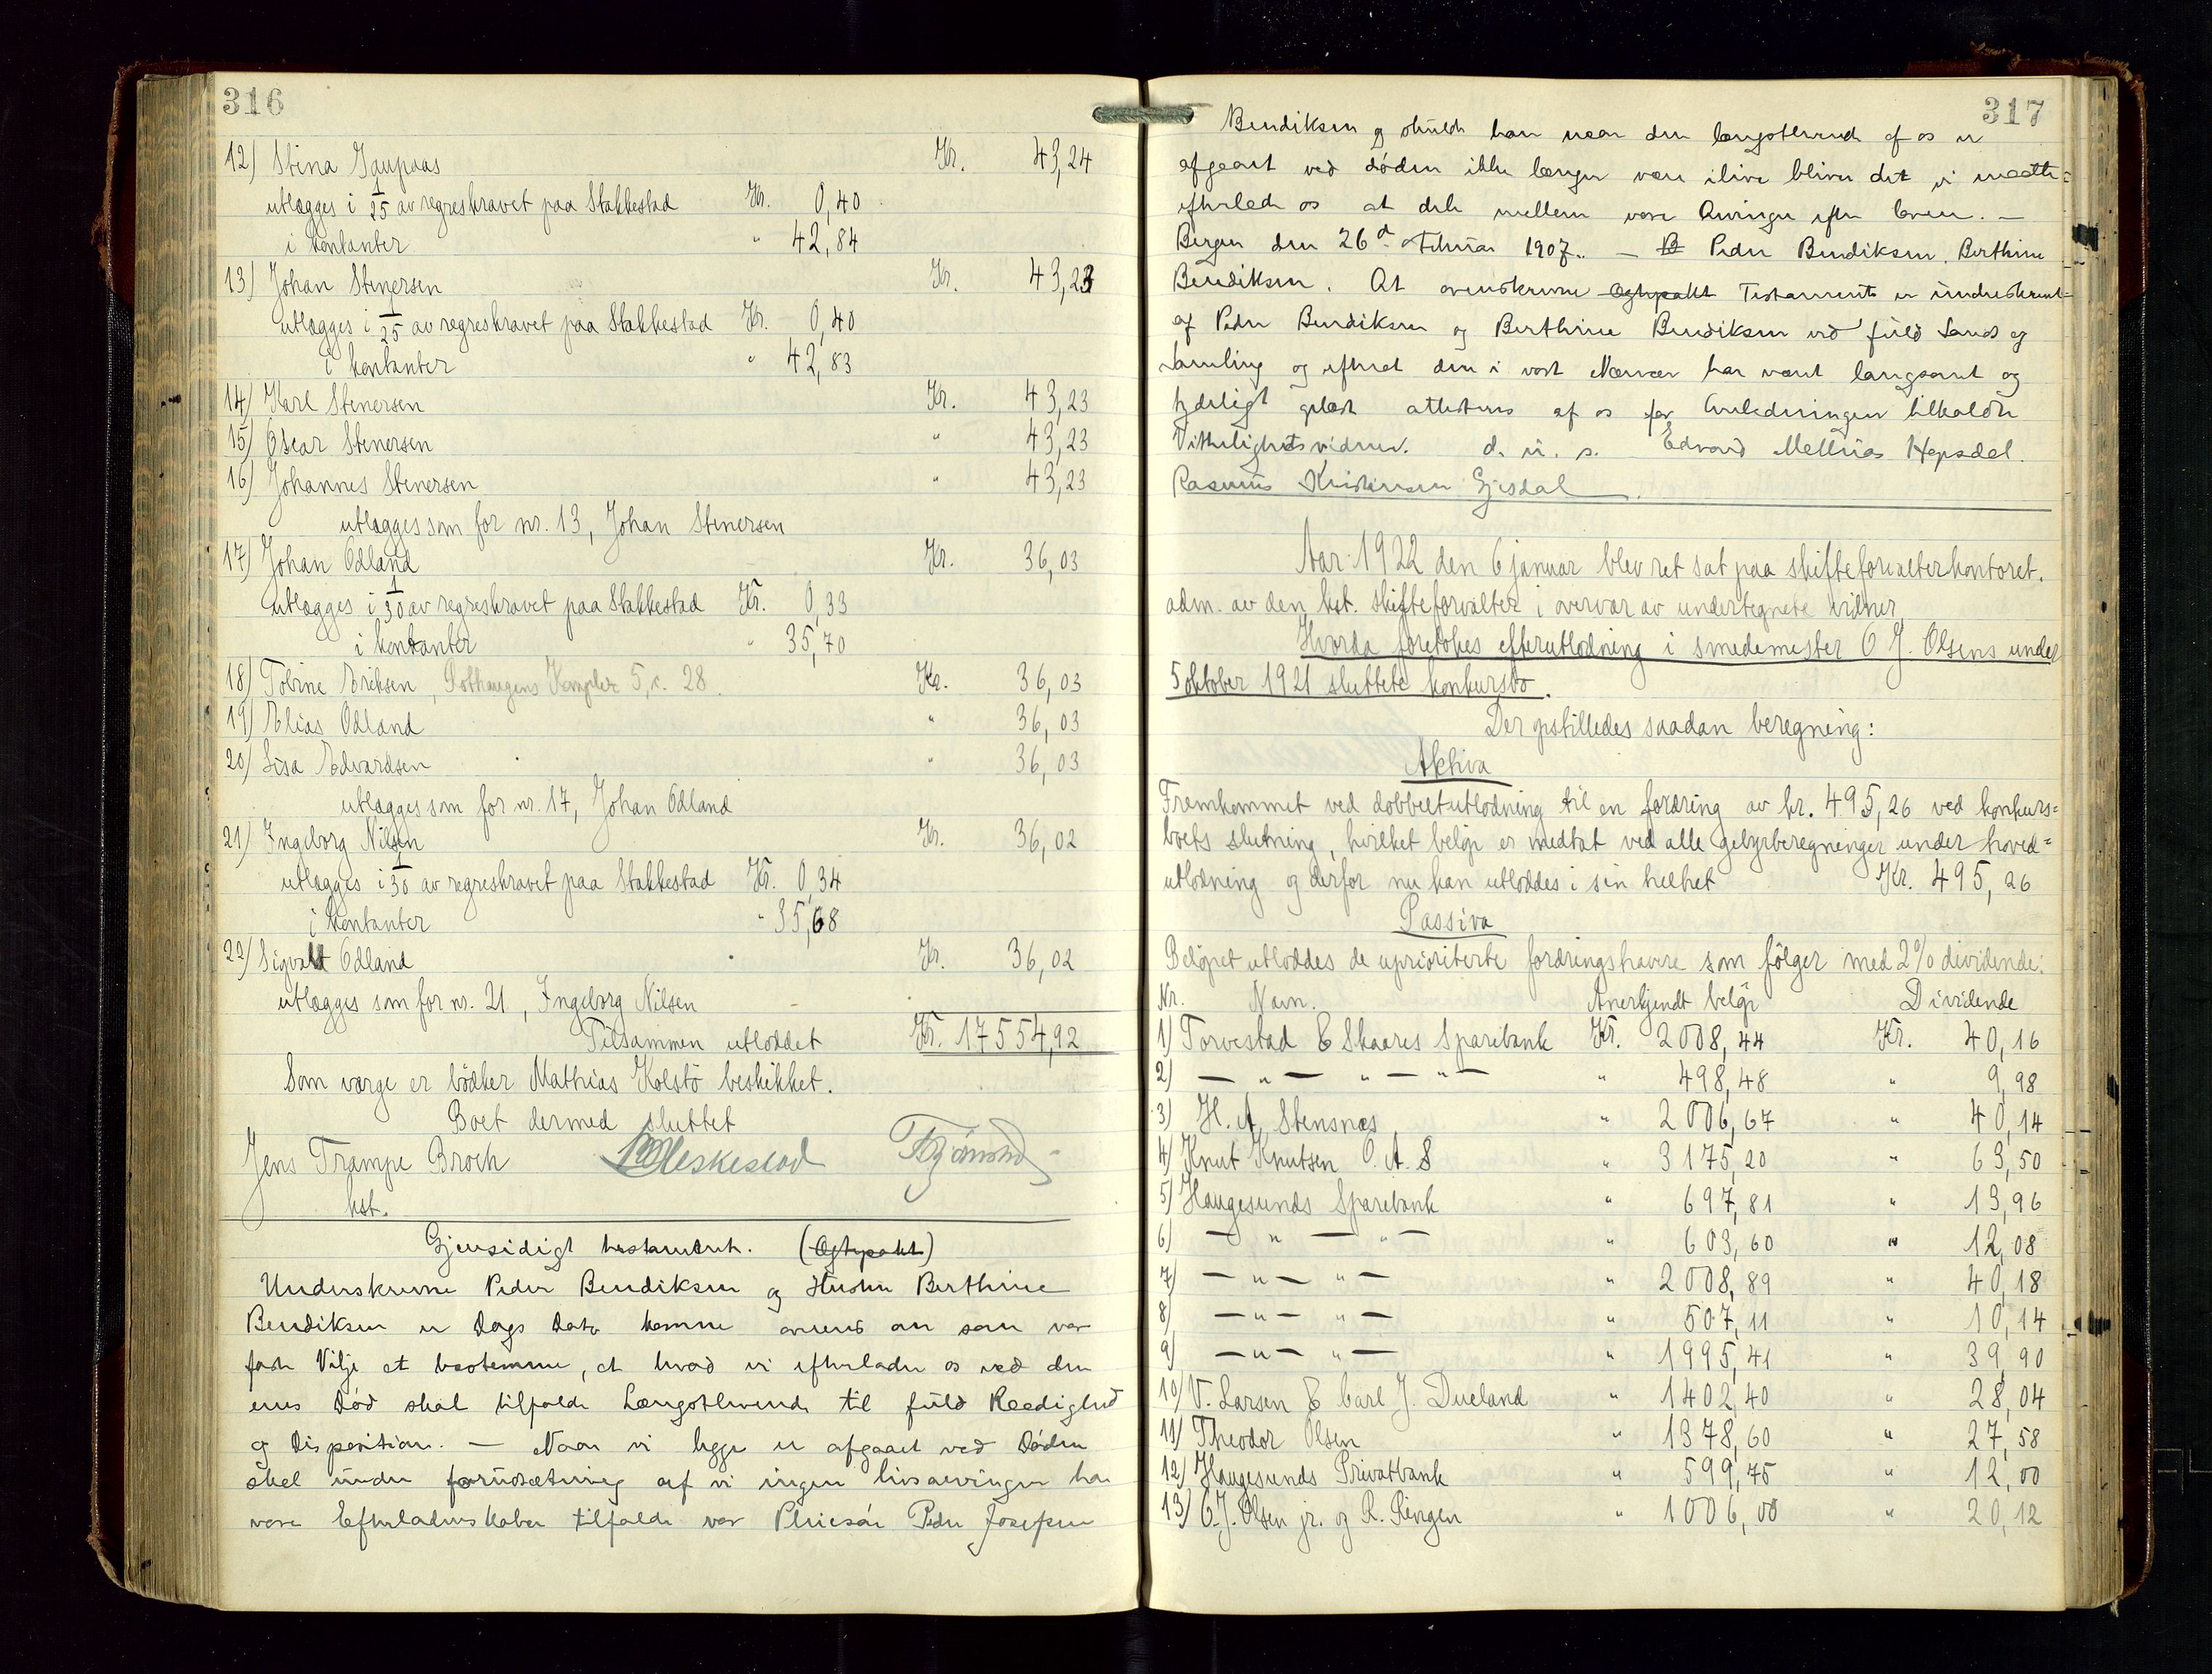 316
12) Stina Gaupaas Kr. 43,24
utlægges i 1/25 av regreskravet paa Stakkestad Kr. 0,40
i kontanter " 42,84
13) Johan Stenersen Kr. 43,23
utlægges i 1/25 av regreskravet paa Stakkestad Kr. 0,40
i kontanter " 42,83
14) Karl Stenersen Kr. 43,23
15) Oscar Stenersen " 43,23
16) Johannes Stenersen " 43,23
utlægges som for nr. 13, Johan Stenersen
17) Johan Odland Kr. 36,03
utlægges i 1/30 av regreskravet paa Stakkestad Kr. 0,33
i kontanter " 35,70
18) Tobine Eriksen, 5, c. 28. Kr. 36,03
19) Elias Odland " 36,03
20) Lisa Edvardsen " 36,03
utlægges som for nr. 17, Johan Odland
21) Ingeborg Nilsen Kr. 36,02
utlægges i 1/30 av regreskravet paa Stakkestad Kr. 0,34
i kontanter " 35,68
22) Sigvalt Odland Kr. 36,02
utlægges som for nr. 21, Ingeborg Nilsen
Tilsammen utloddet Kr. 17554,92
Som værge er bødker Mathias Kolstø beskikket.
Boet dermed sluttet
Jens Trampe Broch
kst.
Gjensidigt testament. (Ægtepakt)
Underskrevne Peder Bendiksen og Hustru Berthine
Bendiksen er Dags Dato komne overens om som vor
faste Vilje at bestemme, at hvad vi efterlader os ved den
enes Død skal tilfalde Længstlevende til fuld Raadighed
og Disposition. — Naar vi begge er afgaaet ved Døden
skal under forudsætning af vi ingen livsarvinger har
vore Efterladenskaber tilfalde vor Pleiesøn Peder Josefsen
317
Bendiksen og skulde han naar den længstlevende af os er
afgaaet ved døden ikke længer være ilive bliver det vi maatte
efterlade os at dele mellem vore Arvinger efter loven. —
Bergen den 26d Februar 1907. — B Peder Bendiksen, Berthine
Bendiksen. At ovenskrevne Ægtepakt Testamente er underskrevet
af Peder Bendiksen og Berthine Bendiksen ved fuld Sands og
Samling og efterat den i vort Nærvær har været langsomt og
tydeligt oplæst attesteres af os for Anledningen tilkaldte
Vitterlighetsvidner. d. u. s. Edvard Mathias Hopsdal.
Rasmus Kristensen Gjesdal.
Aar 1922 den 6 januar blev ret sat paa skifteforvalterkontoret.
adm. av den kst. skifteforvalter i overvær av undertegnete vidner
Hvorda foretokes efterutlodning i smedemester O J. Olsens under
5 oktober 1921 sluttete konkursbo.
Der opstilledes saadan beregning:
Aktiva
Fremkommet ved dobbeltutlodning til en fordring av kr. 495,26 ved konkurs=
boets slutning, hvilket beløp er medtat ved alle gebyrberegninger under hoved=
utlodning og derfor nu kan utloddes i sin helhet Kr. 495,26
Passiva
Beløpet utloddes de uprioriterte fordringshavere som følger med 2% dividende:
Nr. Navn. Anerkjendt beløp Dividende
1) Torvestad & Skaares Sparebank Kr. 2008,44 Kr. 40,16
2) — " — " — " — " 498,48 " 9,98
3) H. A. Stensnæs " 2006,67 " 40,14
4) Knut Knutsen O. A. S " 3175,20 " 63,50
5) Haugesunds Sparebank " 697,81 " 13,96
6) — " — " — " 603,60 " 12,08
7) — " — " — " 2008,89 " 40,18
8) — " — " — " 507,11 " 10,14
9) — " — " — " 1995,41 " 39,90
10) V. Larsen & Carl J. Dueland " 1402,40 " 28,04
11) Theodor Olsen " 1378,60 " 27,58
12) Haugesunds Privatbank " 599,75 " 12,00
13) O. J. Olsen jr. og R. Ringen " 1006,00 " 20,12